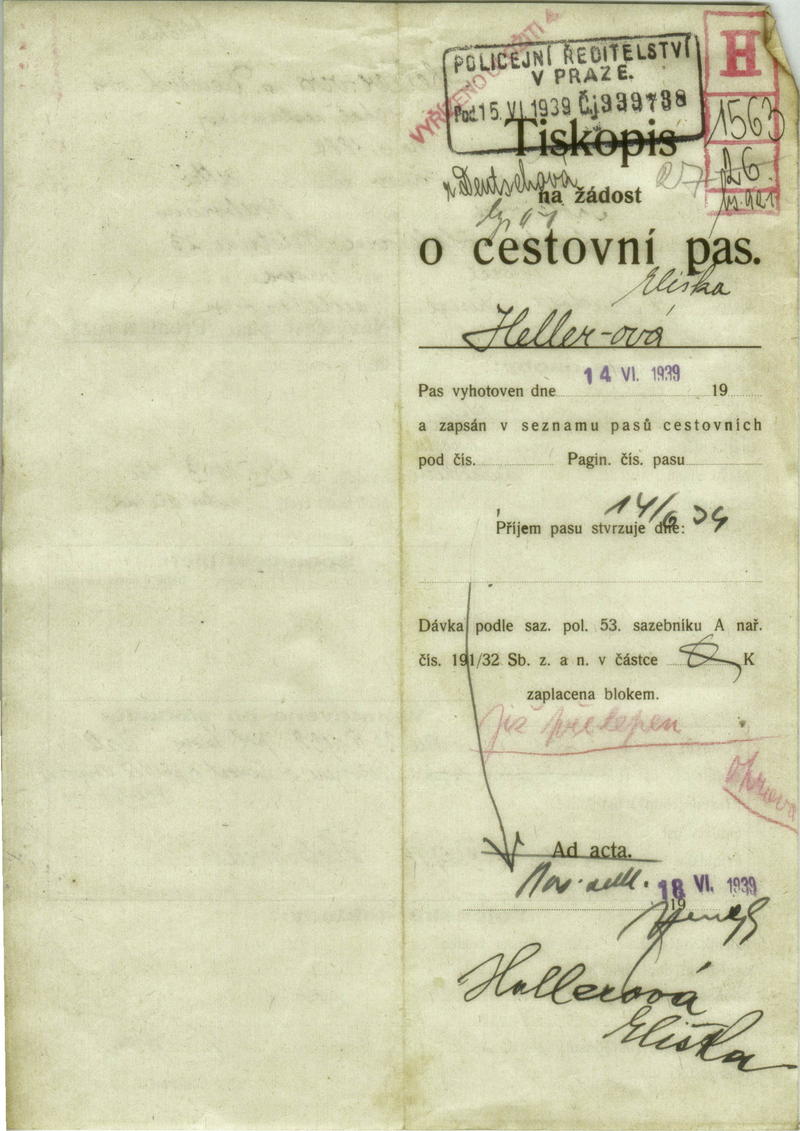 VYŘÍZENO
POLICEJNÍ ŘEDITELSTVÍ
V PRAZE.
Pod 15. VI. 1939 Čj 339738
H
1563
26
Tiskopis
Deutschová
27
na žádost
o cestovní pas.
Eliška
Heller-ová
Pas vyhotoven dne 14 VI. 1939 19
a zapsán v seznamu pasů cestovních
pod čís. Pagin. čís. pasu
14/6 39
Příjem pasu stvrzuje dne:
Dávka podle saz. pol. 53. sazebníku A nař.
čís. 191/32 Sb. z. a n. v částce K
zaplacena blokem.
již přelepen
Ad acta.
18 VI. 1939
19
Hellerová
Eliška